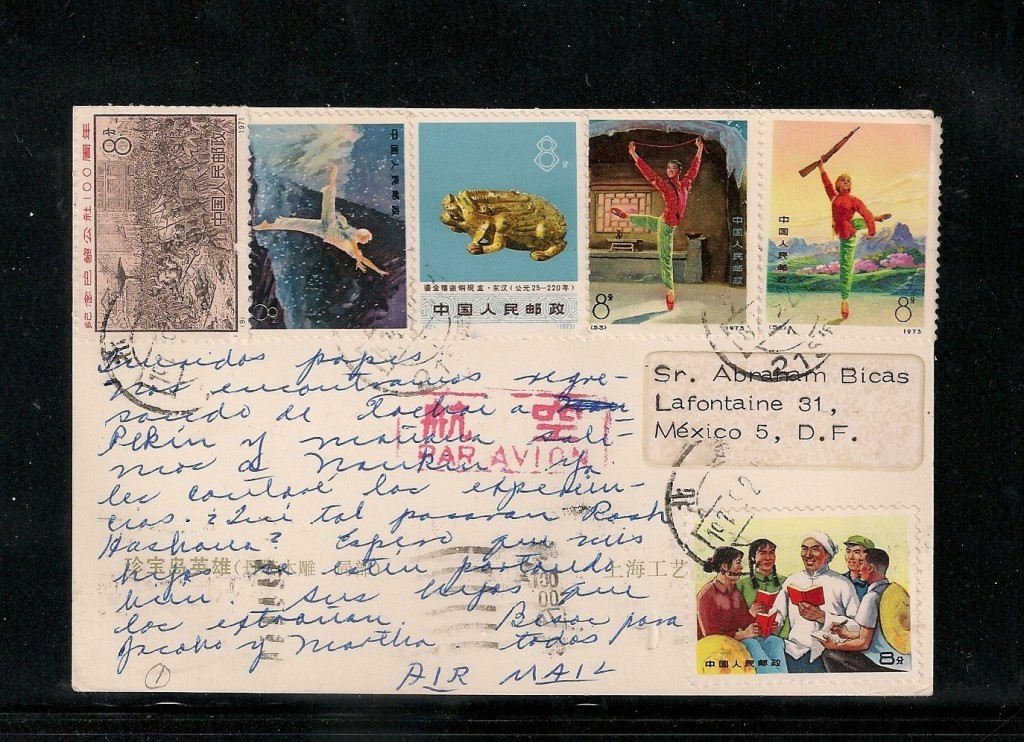 紀念巴黎公社100周年
8分
中国人民邮政
1971
中国人民邮政
8分
8分
鎏金镶嵌铜砚盒·东汉(公元25—220年)
中国人民邮政
(1973)
中国人民邮政
8分
(53)
1973
中国人民邮政
8分
1973
Queridos papis
Nos encontramos regre-
sando de a
Pekin y mañana sali-
mos a Nankin ya
les contaré las experien-
cias. ¿Qué tal pasaron Rosh
Hashana? Espero que mis
hijos se estén portando
bien. Sus hijos que
los extrañan. Besos para
Jacobo y Martha todos
AIR MAIL
航空
PAR AVION
Sr. Abraham Bicas
Lafontaine 31,
México 5, D.F.
珍宝岛英雄
上海工艺
北
中国人民邮政
8分
1